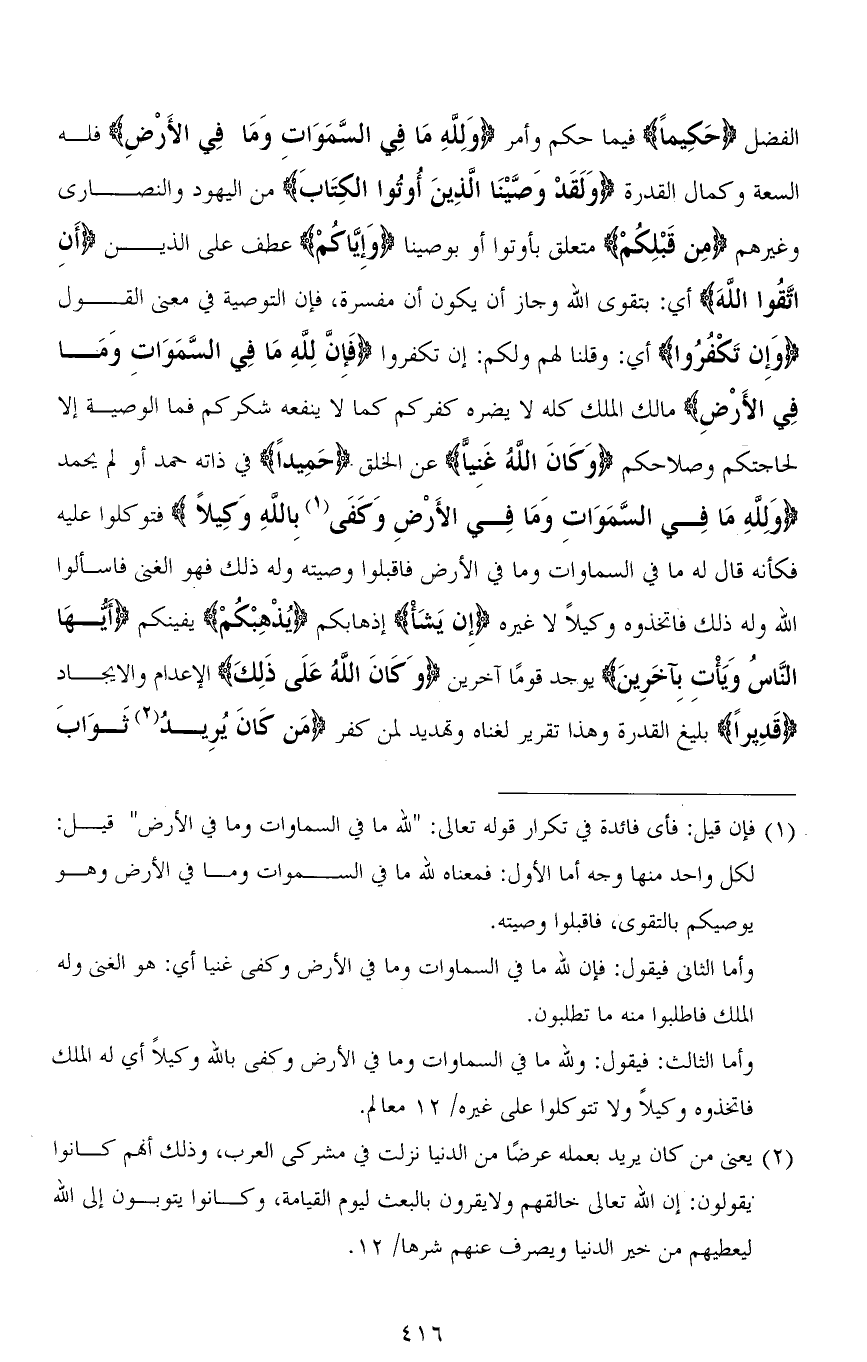 الفضل ﴿حَكِيماً﴾ فيما حكم وأمر ﴿وَلِلَّهِ مَا فِي السَّمَوَاتِ وَمَا فِي الأَرْضِ﴾ فله
السعة وكمال القدرة ﴿وَلَقَدْ وَصَّيْنَا الَّذِينَ أُوتُوا الكِتَابَ﴾ من اليهود والنصارى
وغيرهم ﴿مِن قَبْلِكُمْ﴾ متعلق بأوتوا أو بوصينا ﴿وَإِيَّاكُمْ﴾ عطف على الذين ﴿أَنِ
اتَّقُوا اللَّهَ﴾ أي: بتقوى الله وجاز أن يكون أن مفسرة، فإن التوصية في معنى القول
﴿وَإِن تَكْفُرُوا﴾ أي: وقلنا لهم ولكم: إن تكفروا ﴿فَإِنَّ لِلَّهِ مَا فِي السَّمَوَاتِ وَمَا
فِي الأَرْضِ﴾ مالك الملك كله لا يضره كفركم كما لا ينفعه شكركم فما الوصية إلا
لحاجتكم وصلاحكم ﴿وَكَانَ اللَّهُ غَنِياًّ﴾ عن الخلق ﴿حَمِيداً﴾ في ذاته حمد أو لم يحمد
﴿وَلِلَّهِ مَا فِي السَّمَوَاتِ وَمَا فِي الأَرْضِ وَكَفَى(١) بِاللَّهِ وَكِيلاً﴾ فتوكلوا عليه
فكأنه قال له ما في السماوات وما في الأرض فاقبلوا وصيته وله ذلك فهو الغنى فاسألوا
الله وله ذلك فاتخذوه وكيلاً لا غيره ﴿إِن يَشَأْ﴾ إذهابكم ﴿يُذْهِبْكُمْ﴾ يفينكم ﴿أَيُّهَا
النَّاسُ وَيَأْتِ بِآخَرِينَ﴾ يوجد قومًا آخرين ﴿وَكَانَ اللَّهُ عَلَى ذَلِكَ﴾ الإعدام والايجاد
﴿قَدِيراً﴾ بليغ القدرة وهذا تقرير لغناه وتهديد لمن كفر ﴿مَن كَانَ يُرِيدُ(٢) ثَوَابَ
(١) فإن قيل: فأى فائدة في تكرار قوله تعالى: "لله ما في السماوات وما في الأرض" قيل:
لكل واحد منها وجه أما الأول: فمعناه لله ما في السموات وما في الأرض وهو
يوصيكم بالتقوى، فاقبلوا وصيته.
وأما الثانى فيقول: فإن لله ما في السماوات وما في الأرض وكفى غنيا أي: هو الغنى وله
الملك فاطلبوا منه ما تطلبون.
وأما الثالث: فيقول: ولله ما في السماوات وما في الأرض وكفى بالله وكيلاً أي له الملك
فاتخذوه وكيلاً ولا تتوكلوا على غيره/ ١٢ معالم.
(٢) يعنى من كان يريد بعمله عرضًا من الدنيا نزلت في مشركى العرب، وذلك أنهم كانوا
يقولون: إن الله تعالى خالقهم ولايقرون بالبعث ليوم القيامة، وكانوا يتوبون إلى الله
ليعطيهم من خير الدنيا ويصرف عنهم شرها/ ١٢.
٤١٦